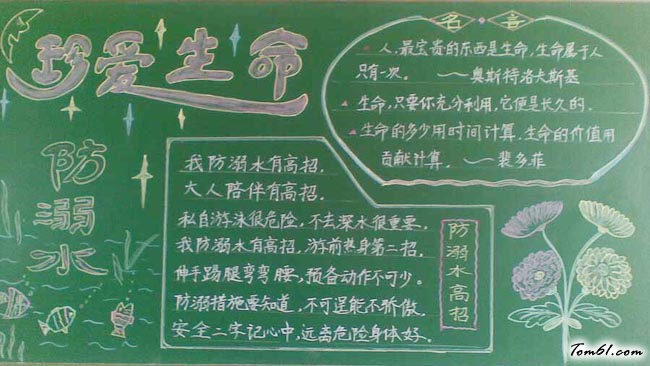 珍爱生命
防溺水
名言
人,最宝贵的东西是生命,生命属于人
只有一次。 ——奥斯特洛夫斯基
生命,只要你充分利用,它便是长久的。
生命的多少用时间计算,生命的价值用
贡献计算。 ——裴多菲
我防溺水有高招,
大人陪伴有高招,
私自游泳很危险,不去深水很重要。
我防溺水有高招,游前热身第二招,
伸手踢腿弯弯腰,预备动作不可少。
防溺措施要知道,不可逞能不骄傲,
安全二字记心中,远离危险身体好。
防溺水高招
Tom61.com